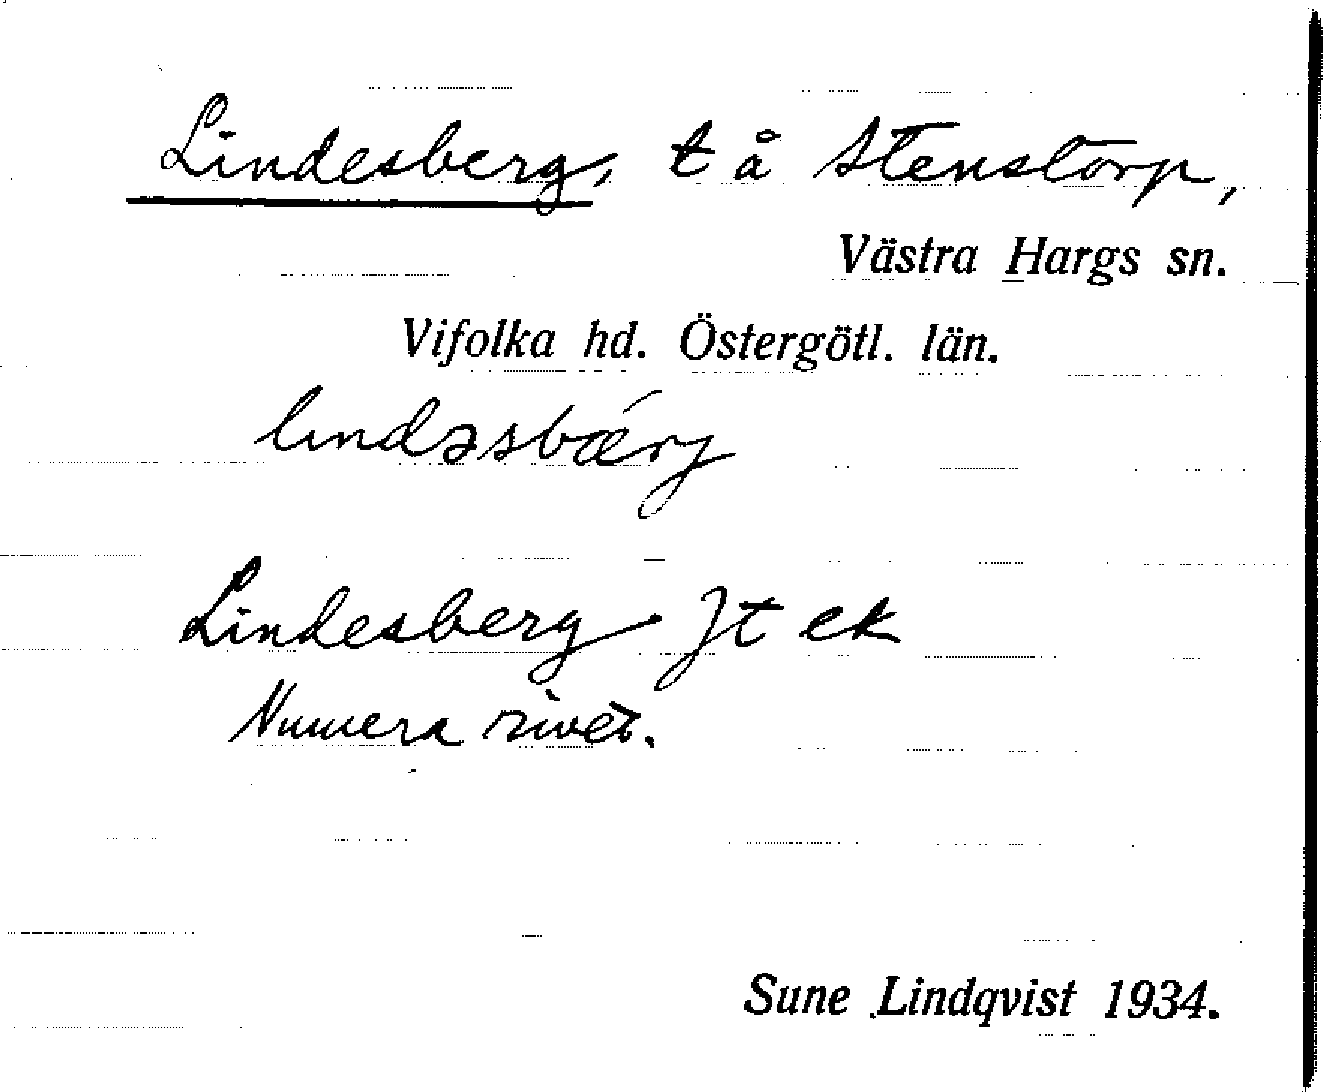 Lindesberg, t å Stenstorp,
Västra Hargs sn.
Vifolka hd. Östergötl. län.
lındəsbǽrj
Lindesberg Jt ek
Numera rivet.
Sune Lindqvist 1934.